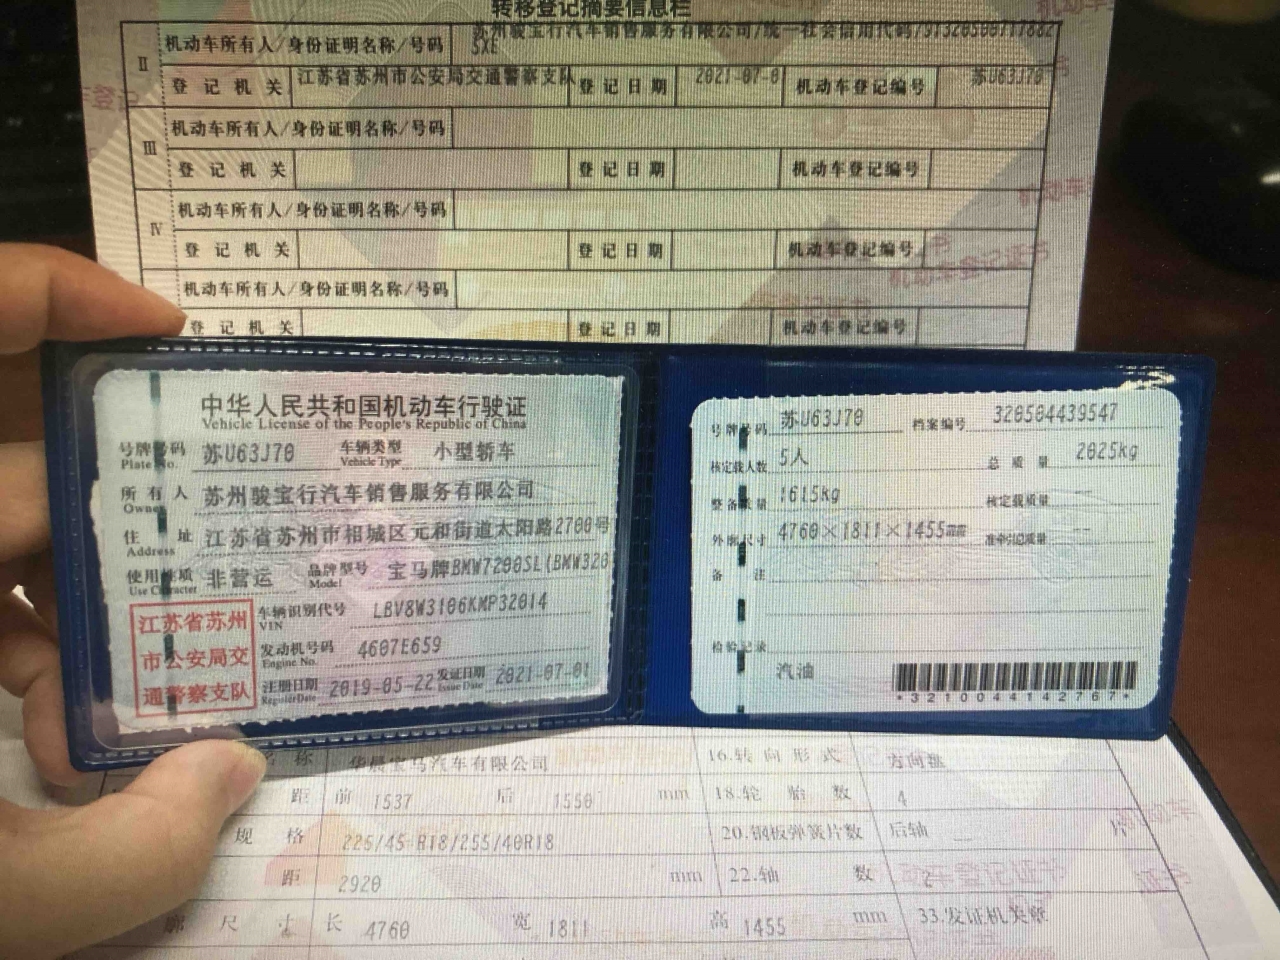 转移登记摘要信息栏
Ⅱ 机动车所有人/身份证明名称/号码 苏州骏宝行汽车销售服务有限公司/统一社会信用代码/
5XE
登记机关 江苏省苏州市公安局交通警察支队 登记日期 2021-07-0 机动车登记编号 苏U63J70
Ⅲ 机动车所有人/身份证明名称/号码
登记机关 登记日期 机动车登记编号
Ⅳ 机动车所有人/身份证明名称/号码
登记机关 登记日期 机动车登记编号
机动车所有人/身份证明名称/号码
登记机关 登记日期 机动车登记编号
中华人民共和国机动车行驶证
Vehicle License of the People's Republic of China
号牌号码 苏U63J70 车辆类型 小型轿车
Plate No. Vehicle Type
所有人 苏州骏宝行汽车销售服务有限公司
Owner
住址 江苏省苏州市相城区元和街道太阳路2700号
Address
使用性质 非营运 品牌型号 宝马牌BMW7200SL(BMW320
Use Character Model
江苏省苏州
市公安局交
通警察支队
车辆识别代号 LBV8W3106KMP32014
VIN
发动机号码 4607E659
Engine No.
注册日期 2019-05-22 发证日期 2021-07-01
Register Date Issue Date
号牌号码 苏U63J70 档案编号 320504439547
核定载人数 5人 总质量 2025kg
整备质量 1615kg 核定载质量 --
外廓尺寸 4760×1811×1455mm 准牵引总质量 --
备注
检验记录
汽油
*3210044142767*
名称 华晨宝马汽车有限公司 16.转向形式 方向盘
距 前 1537 后 1550 mm 18.轮胎数 4
规格 225/45 R18/255/40R18 20.钢板弹簧片数 后轴 -- 片
距 2920 mm 22.轴数 2
廓尺寸 长 4760 宽 1811 高 1455 mm 33.发证机关章